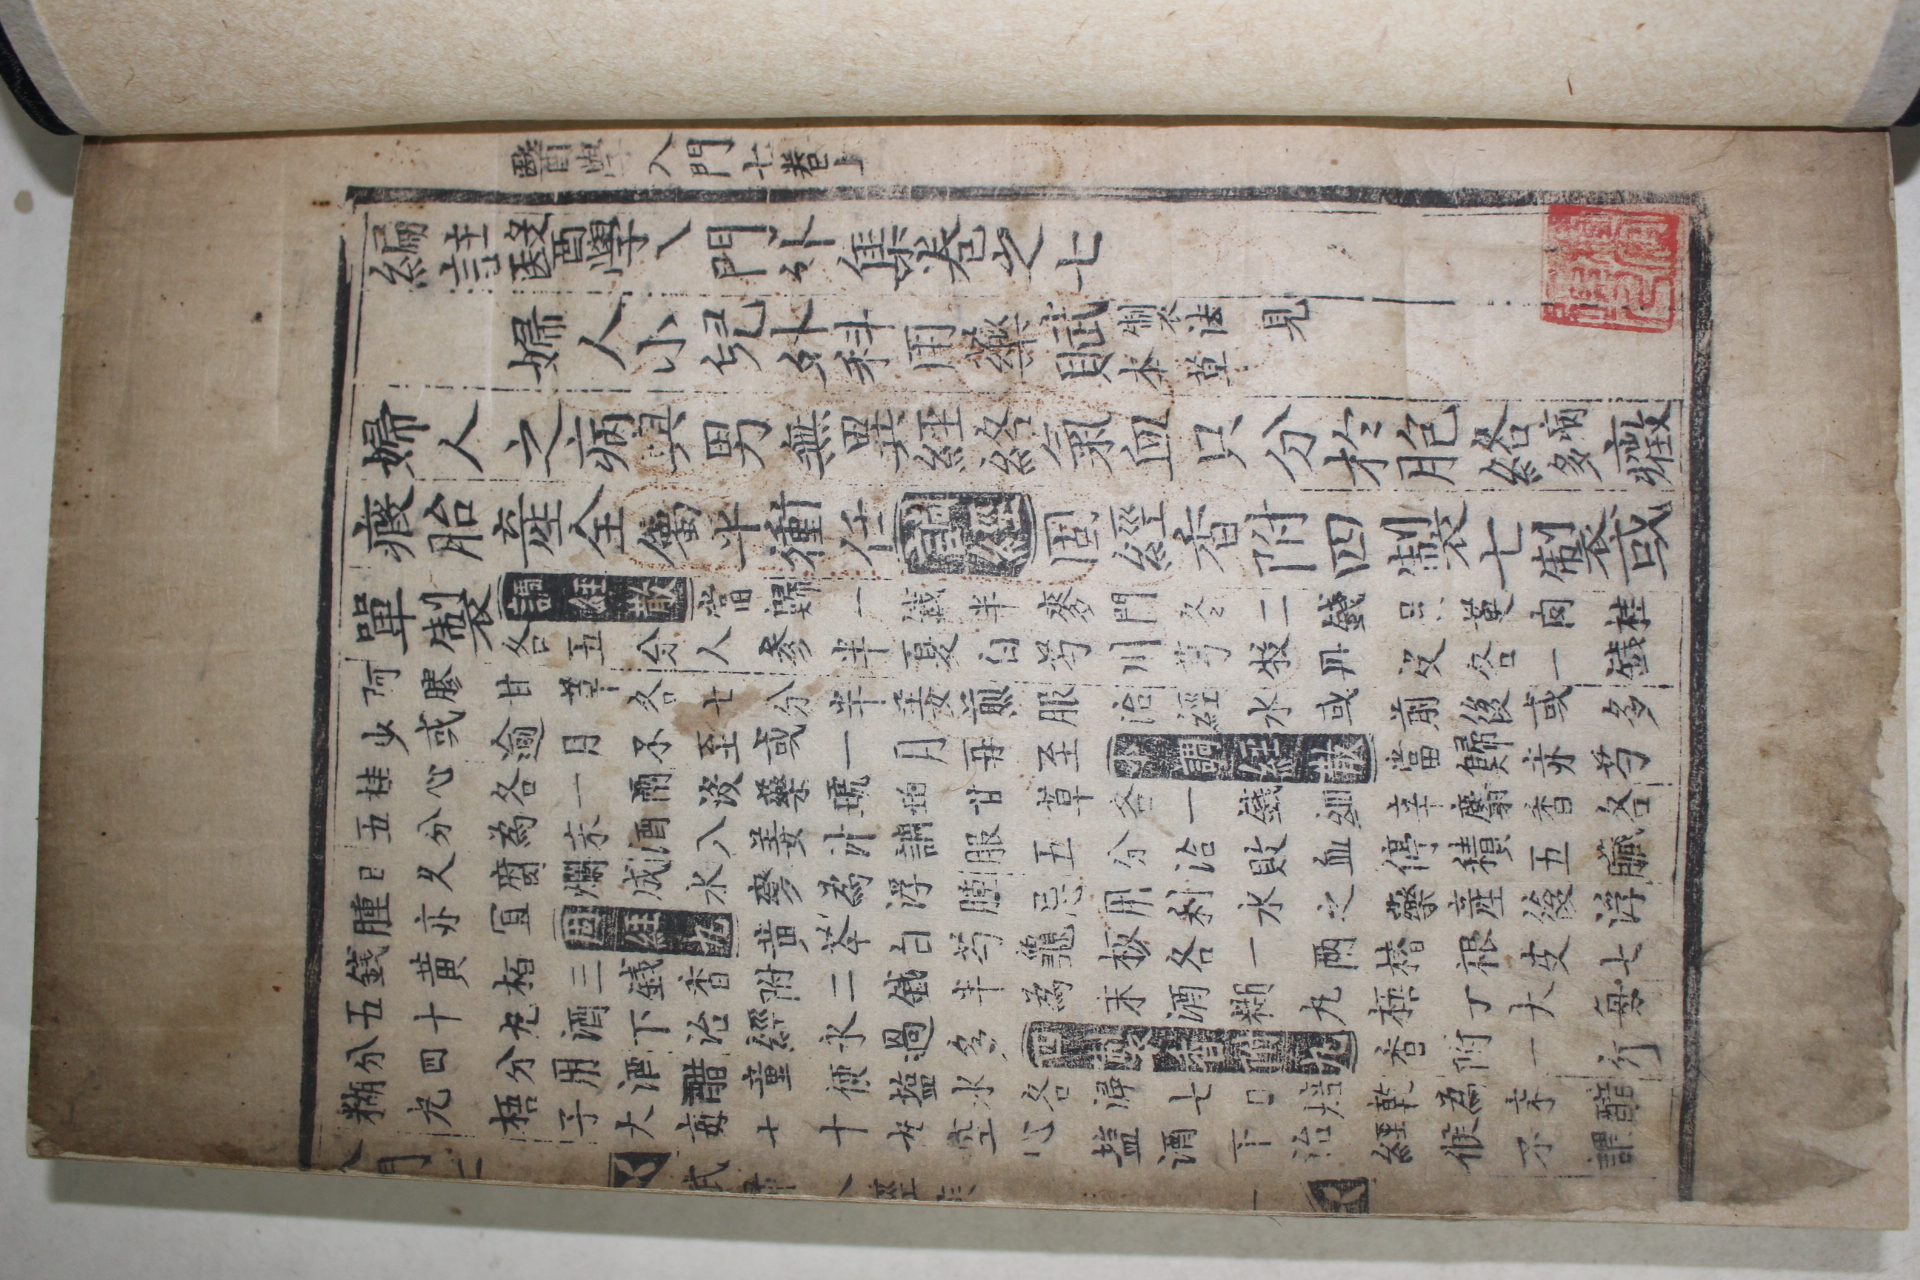 醫學入門七卷上
編註醫學入門外集卷之七
婦人小兒外科用藥賦製法見
本草
婦人之病與男無異經絡氣血只分於胞絡病多癥
瘕胎產全屬乎衝任調經固經香附四製七製或
單製調經散當歸一錢半麥門冬二錢吳萸肉桂
各五分人參半夏白芍川芎牧丹皮各一錢
阿膠甘草各七分半姜煎服治經水或前後或多
少或逾月不至或一月再至小調經散當歸赤芍
桂心各一兩沒藥琥珀甘草各一錢細辛麝香各
五分為末酒入姜汁調服五分治敗血停積五臟
日久腐爛成水變為浮腫忌用利水之藥產後浮
腫亦宜固經丸黃芩白芍龜板各一兩椿根皮七
錢黃栢三錢香附二錢半為末酒糊丸梧子大每
五十丸酒下治經水過多四製香附丸香附一斤
分四分用酒醋童便塩水各浸七日焙乾為末醋
糊丸梧子大每七十丸空心塩酒下治經候不調
入門七